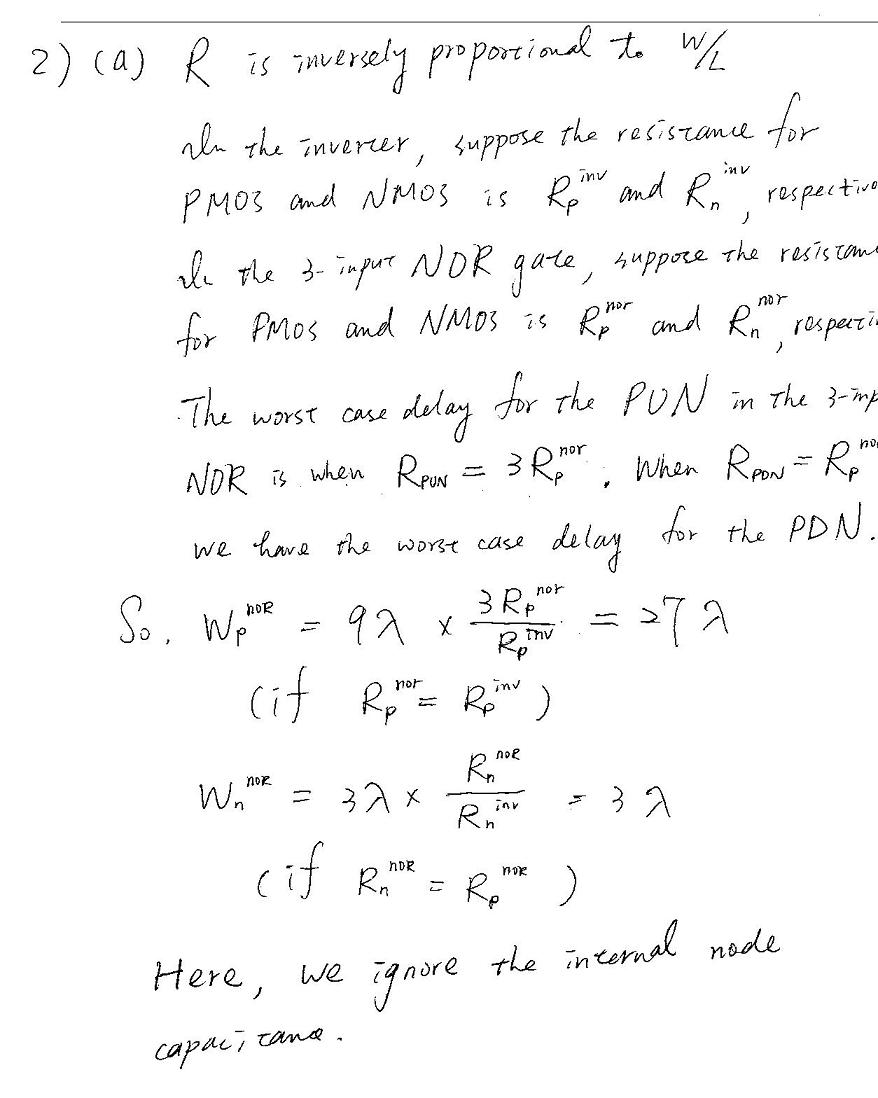 2) (a) R is inversely proportional to W/L
In the inverter, suppose the resistance for
PMOS and NMOS is Rp^inv and Rn^inv, respective
In the 3-input NOR gate, suppose the resistan
for PMOS and NMOS is Rp^nor and Rn^nor, respecti
The worst case delay for the PUN in the 3-inp
NOR is when R_PUN = 3Rp^nor. When R_PDN = Rp^no
we have the worst case delay for the PDN.
So, Wp^NOR = 9λ × 3Rp^nor / Rp^inv = 27λ
(if Rp^nor = Rp^inv)
Wn^NOR = 3λ × Rn^NOR / Rn^inv = 3λ
(if Rn^NOR = Rp^NOR)
Here, we ignore the internal node
capacitance.